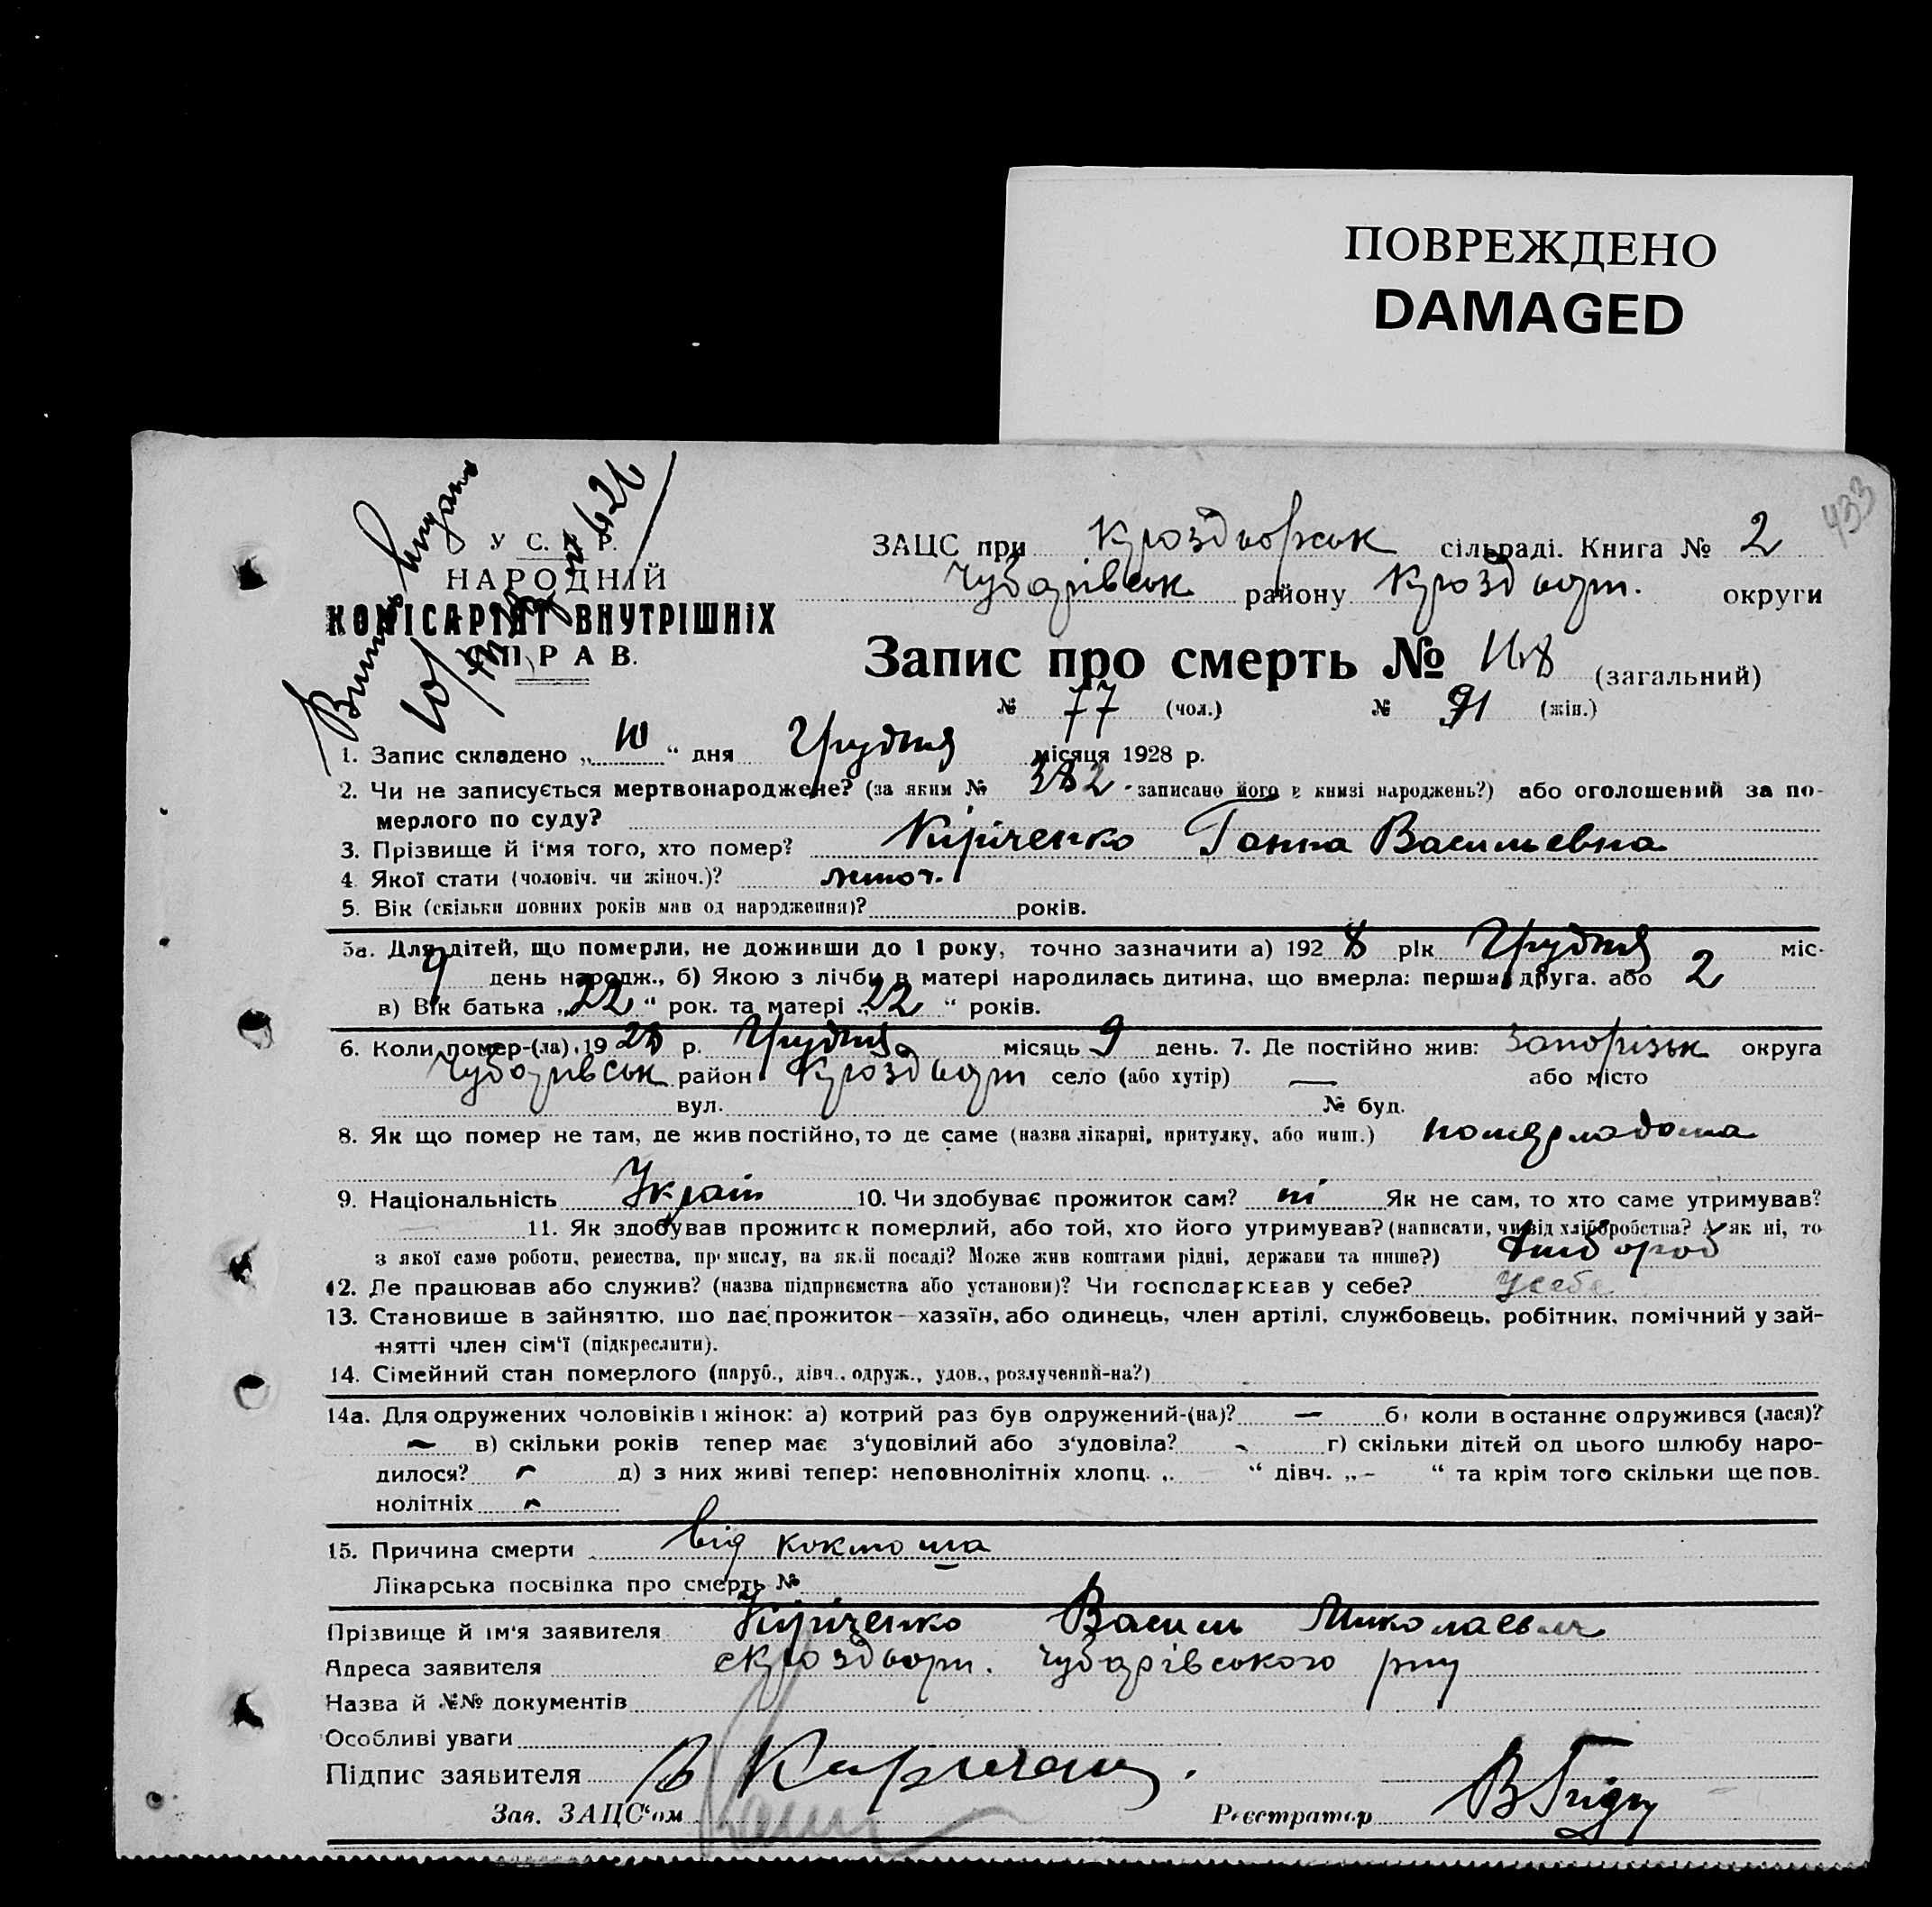 ПОВРЕЖДЕНО
DAMAGED
433
У С. Р. Р.
НАРОДНІЙ
КОМІСАРІЯТ ВНУТРІШНІХ
СПРАВ.
ЗАЦС при сільраді. Книга № 2
Чубарівськ району округи
Запис про смерть № 168 (загальний)
№ 77 (чол.) № 91 (жін.)
1. Запис складено „ 10 “ дня Грудня місяця 1928 р.
2. Чи не записується мертвонароджене? (за яким № 382 записано його в книзі народжень?) або оголошений за по-
мерлого по суду?
3. Прізвище й і'мя того, хто помер? Кіріченко Ганна Васильевна
4. Якої стати (чоловіч. чи жіноч.)? жіноч.
5. Вік (скільки повних років мав од народження)? років.
5а. Для дітей, що померли, не доживши до 1 року, точно зазначити а) 192 8 рік Грудня міс-
9 день народж., б) Якою з лічби в матері народилась дитина, що вмерла: перша, друга. або 2
в) Вік батька „ 22 “ рок. та матері „ 22 “ років.
6. Коли помер-(ла) 19 28 р. Грудня місяць 9 день. 7. Де постійно жив: Запорізьк округа
Чубарівськ район село (або хутір) — або місто
вул. № буд.
8. Як що помер не там, де жив постійно, то де саме (назва лікарні, притулку, або инш.) померла дома
9. Національність Україн 10. Чи здобуває прожиток сам? ні Як не сам, то хто саме утримував?
11. Як здобував прожиток померлий, або той, хто його утримував? (написати, чи від хліборобства? А як ні, то
з якої саме роботи, ремества, промислу, на якій посаді? Може жив коштами рідні, держави та инше?) хлібороб
12. Де працював або служив? (назва підприємства або установи)? Чи господарював у себе? у себе
13. Становище в зайняттю, що дає прожиток—хазяїн, або одинець, член артілі, службовець, робітник, помічний у зай-
нятті член сім'ї (підкреслити).
14. Сімейний стан померлого (паруб., дівч., одруж., удов., розлучений-на?)
14а. Для одружених чоловіків і жінок: а) котрий раз був одружений-(на)? — б) коли востаннє одружився (лася)?
— в) скільки років тепер має з'удовілий або з'удовіла? - г) скільки дітей од цього шлюбу наро-
дилося? - д) з них живі тепер: неповнолітніх хлопц. „ “ дівч. „ - “ та крім того скільки ще пов-
нолітніх -
15. Причина смерти від коклюша
Лікарська посвідка про смерть №
Прізвище й ім'я заявителя Кіріченко Василь Миколаевич
Адреса заявителя Чубарівського р-ну
Назва й №№ документів
Особливі уваги
Підпис заявителя
Зав. ЗАЦС'ом Реєстратор